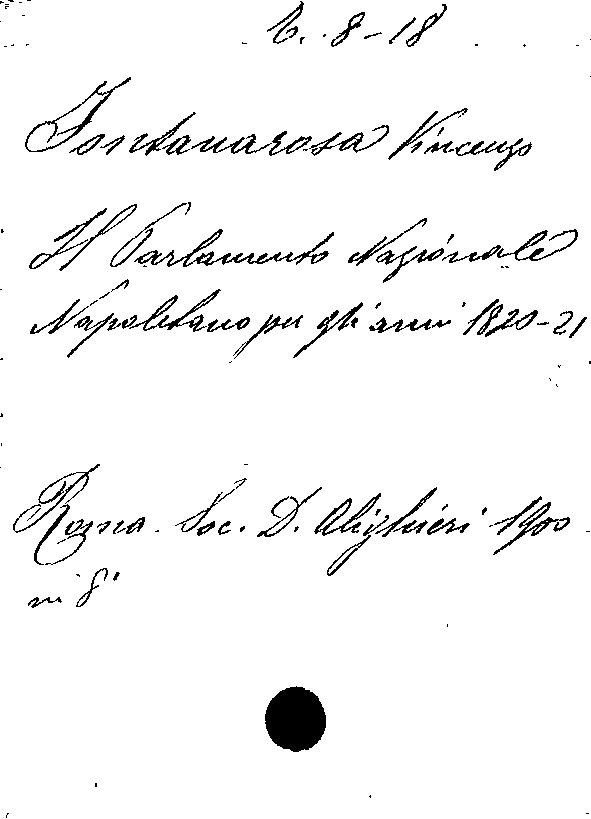 b. 8-18
Fontanarosa Vincenzo
Il Parlamento Nazionale
Napoletano per gli anni 1820-21
Roma. Soc. D. Alighieri 1900
in 8°